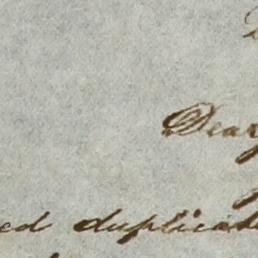 Dear
ed duplicate